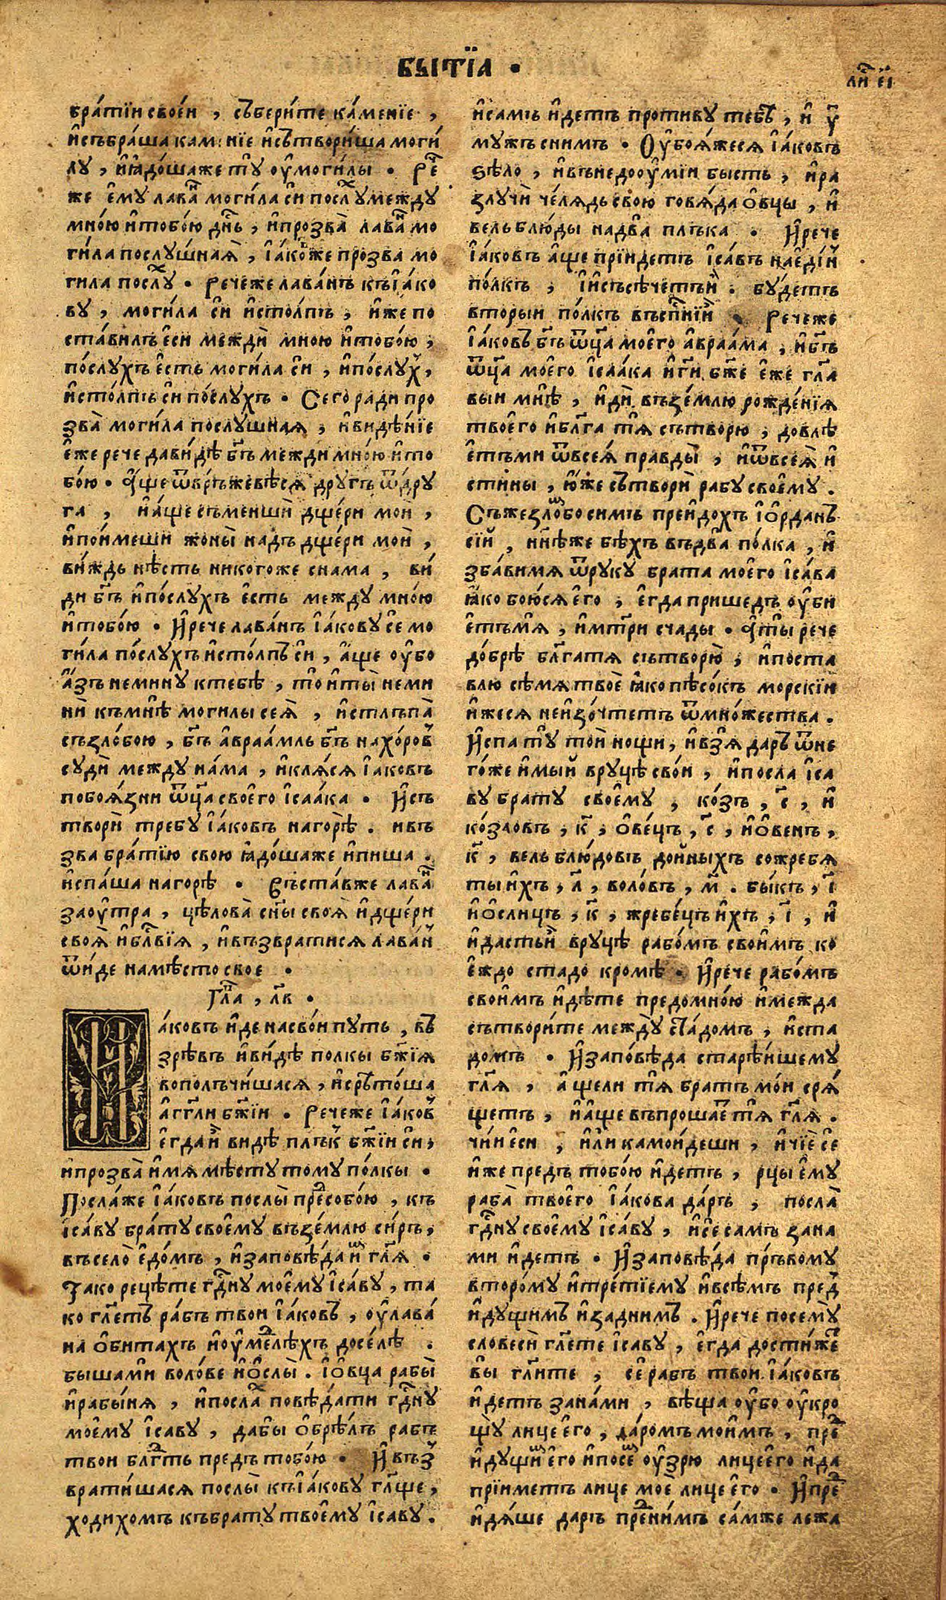 БЫТЇА .
ли́ еі
бра́тїи свое́и , събери́те ка́менїе ,
и҆събра́ша кам нїе и҆сътвори́ша моги
лу , и҆ꙗдо́шаже тꙋ оу҆моги́лы . Рⷱ҇е
же є҆му лава́ моги́ла си послꙋмежду
мно́ю и҆тобо́ю дн҃ь , и҆прозва̀ лава́ мо
ги́ла послу́шнаѧ , і҆а́коже прозва мо
гила послу . Речеже лава́нъ къі҆а́ко
ву , моги́ла си и҆сто́лпъ , и҆же по
ста́вилъ еси межди мною и҆тобо́ю ,
по́слухъ є҆сть моги́ла си , и҆по́слух ,
и҆сто́лпъ си по́слухъ . Сего ради про
зва̀ моги́ла послу́шнаѧ , и҆видѣ́нїе
є҆́же рече дави́дѣ бг҃ъ межди мно́ю и҆то
бо́ю . А҆́ще ѿвръжевѣсѧ другъ ѿдру
га , и҆а́ще съмениши дще́ри мои ,
и҆по́имеши жоны̀ надъ дще́ри мои ,
ви́ждь нѣ́сть никогоже снама , ви́
ди бг҃ъ и҆по́слухъ є҆сть между мно́ю
и҆тобо́ю . И҆рече лава́нъ і҆а́кову се мо
ги́ла по́слухъ и҆сто́лпъ си , а҆́ще оу҆бо
а҆́зъ немину ктебѣ , то и҆ты̀ неми
нѝ къмнѣ̀ могилы сеѧ̀ , и҆стлъпа̀
съзло́бою , бг҃ъ а҆враа́мль бг҃ъ нахо́ровъ
судѝ между на́ма , и҆клѧ́сѧ і҆а́ковъ
побоѧ́зни ѿц҃а своего і҆саа́ка . И҆съ
творѝ требу і҆а́ковъ нагорѣ̀ . ивъ
зва бра́тїю свою ꙗдо́шаже и҆пиша .
и҆спа́ша нагорѣ̀ . Въста́вже лава́н
заоу́тра , цѣлова̀ сн҃ы своѧ̀ и҆дще́ри
своѧ̀ и҆блг҃виѧ , и҆възвратисѧ лава́н
ѿи́де намѣ́сто свое .
Гл҃а , л҃в .
И҆а́ковъ и҆де насвои путь , въ
зрѣ́въ и҆видѣ полкы бж҃їѧ
вополчи́шасѧ , и҆срѣто́ша
а҆г҃гли бж҃їи . Речеже і҆а́ков
є҆гда́ виде плък бж҃їи си ,
и҆прозва̀ и҆мѧ мѣсту тому по́лкы .
Посла́же і҆а́ковъ послы̀ пре́собо́ю , къ
і҆са́ву бра́ту своему въземлю си́ръ ,
въсело̀ є҆дом , и҆заповѣ́да и҆м гл҃ѧ .
Та́ко рецѣ́те гд҃ину мое́му і҆саву , та
ко гл҃етъ рабъ твои і҆а́ковъ , оу҆лава́
на о҆битахъ и҆оу҆ме́дл҃ѣхъ досе́лѣ .
бы́шами воло́ве и҆о҆слы̀ . і҆о҆вца рабы̀
и҆рабы́нѧ , и҆посла пове́дати гд҃ну
мое́му і҆саву , дабы̀ о҆брѣ́лъ рабъ
твои блг҃ть предъ тобо́ю . И҆въз
врати́шасѧ послы̀ къі҆а́кову гл҃ще ,
ходи́хомъ къбрату твое́му і҆саву .
и҆са́мъ и҆детъ противу тебѣ , и҆ у҃
мужъ снимъ . Оу҆боѧ́жесѧ і҆а́ковъ
ѕѣло , и҆вънедооу҆мїи бысть , и҆ра
злучѝ че́лѧдь свою говѧ́да о҆вцы , и҆
вельблю́ды надва̀ плъка . И҆рече
і҆а́ковъ а҆ще прїи́детъ і҆са́въ нае҆ди́н
по́лкъ , и҆і҆съсѣче́тъи . бу́детъ
вторыи по́лкъ въспн҃їи . Речеже
і҆а́ковъ бг҃ъ ѿц҃а моего а҆враа́ма , и҆бг҃ъ
ѿц҃а моего і҆саа́ка и҆ги бж҃е є҆же гл҃а
выи мнѣ̀ , и҆дѝ възе́млю рожде́нїѧ
твоего и҆блг҃а тѧ̀ сътворю , довлѣ
є҆тъми ѿвсеѧ̀ правды̀ , и҆ѿвсеѧ̀ и҆
стины , ю҆́же сътворѝ рабу своему .
Съже́зло́мбо симъ преи́дохъ і҆о҆рданъ
сїи , нн҃ѣже бѣхъ въдва̀ по́лка , и҆
зба́вимѧ ѿруку брата моего і҆са́ва
ꙗ́ко бою́сѧ є҆го , є҆гда пришедъ оу҆би
є҆тъмѧ , и҆мт҃ри счады . А҆ты̀ рече
до́брѣ блг҃атѧ сътворю̀ , и҆поста
влю сѣ́мѧ твоѐ ꙗ҆ко пѣсо́къ морскїи
и҆жесѧ неи҆зо́чтетъ ѿмно́жества .
И҆спа тꙋ той но́щи , и҆взѧ́ дарѣ ѿне
го́же и҆мый вручѣ̀ сво́и , и҆посла і҆са
ву брату своему , ко́зъ , с҃ , и҆
козло́въ , к҃ , о҆ве́цъ , с҃ , и҆о҆венъ ,
к҃ , вельблю́довъ до́йныхъ сожребѧ
ты и҆хъ , л҃ , воло́въ , м҃ . быкъ , і҃
и҆о҆сли́цъ , к҃ , жребецъ и҆хъ , і҃ , и҆
и҆дастьи́ вручѣ̀ рабо́мъ свои́мъ ко
є҆ждо стадо кромѣ̀ . И҆рече рабо́мъ
свои́мъ и҆дѣте предомно́ю и҆межда
сътвори́те междꙋ ста́домъ , и҆ста
домъ . И҆запо́вѣда старѣ́ишему
гл҃ѧ , а҆ щели тѧ̀ братъ мо́и срѧ́
щетъ , и҆а́ще въпроша́етъ тѧ̀ гл҃ѧ .
чїи еси , и҆ли камо́идеши , и҆чїе се
и҆же предъ тобо́ю и҆детъ , рцы є҆му
раба̀ твоего і҆а́кова да́ръ , посла̀
гд҃ну своему і҆саву , и҆се самъ зана
ми и҆детъ . И҆заповѣ́да пръвому
второ́му и҆трети́ему и҆всѣмъ пред
и҆дущимъ и҆за́днимъ . И҆рече посемꙋ
словесѝ гл҃ете і҆саву , є҆гда дости́же
вы гл҃ите , се рабъ твои і҆а́ковъ
и҆детъ зана́ми , вѣща оу҆бо оу҆кро
щꙋ лице є҆го , даромъ мои́мъ , пре
и҆ду́щим є҆го и҆посем оу҆зрю лицеего и҆да
прїиметъ лице моѐ лице є҆го . И҆пре
и҆дѧ́ше даръ пре́нимъ са́мже лежа